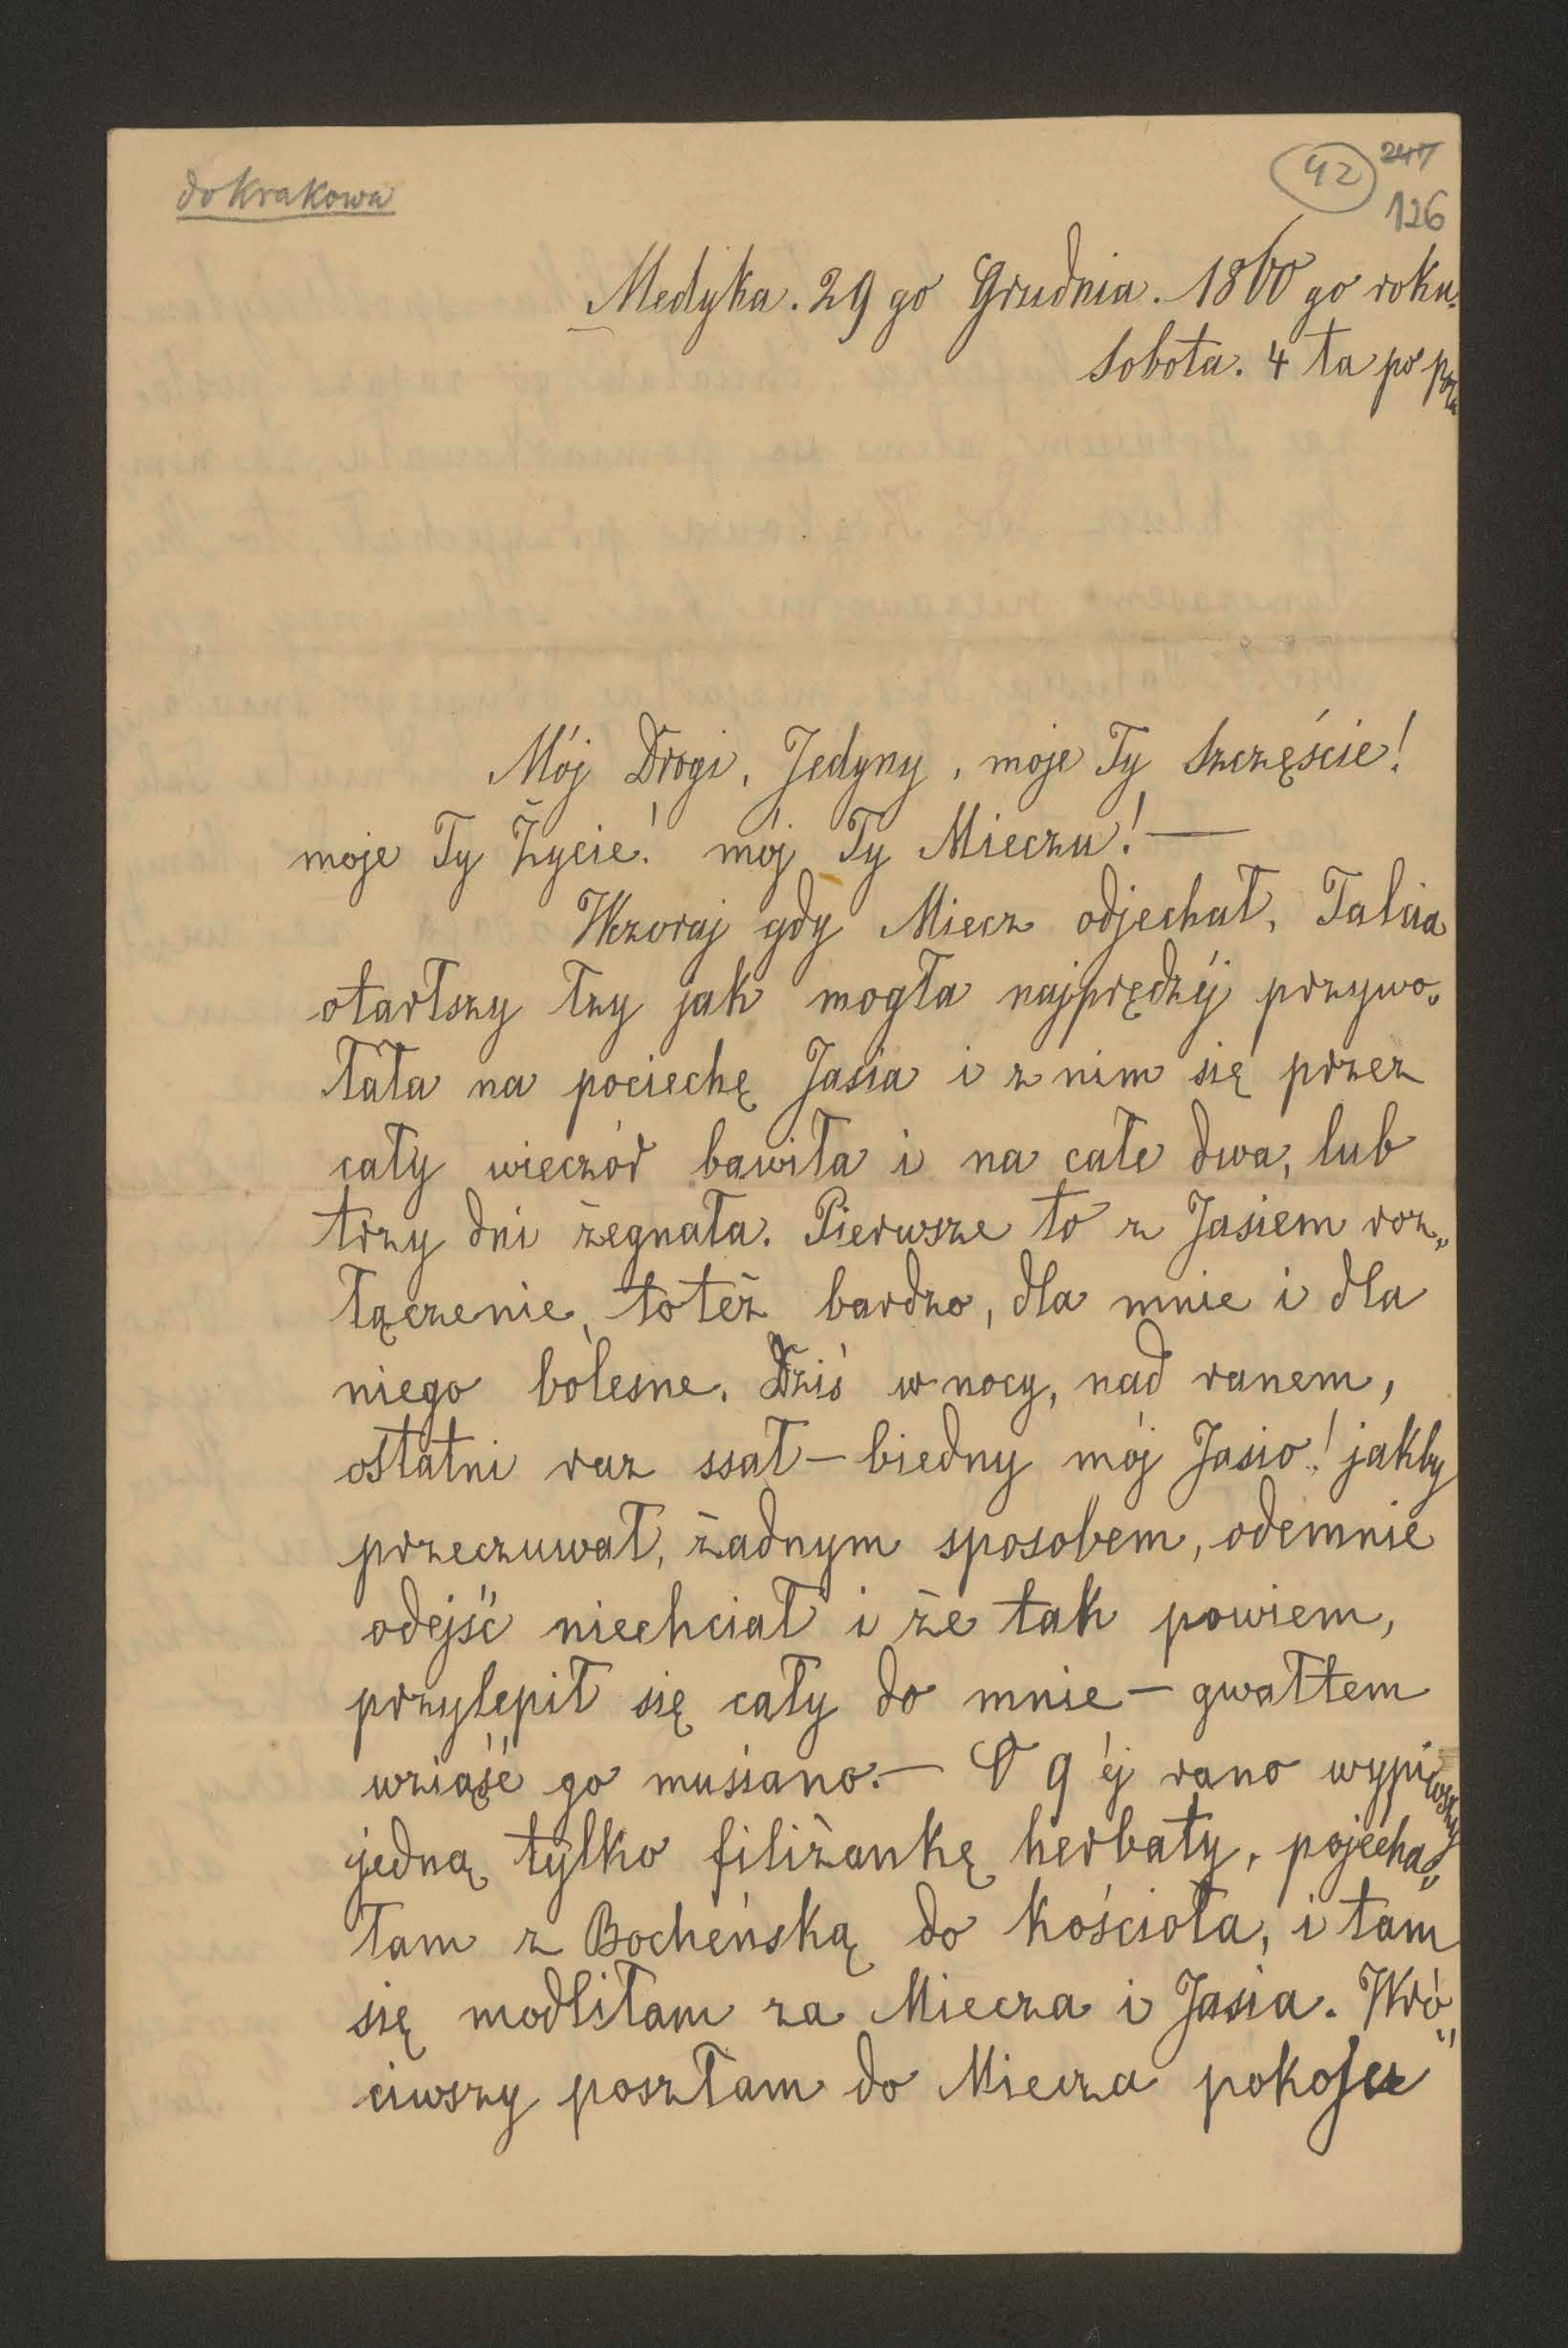 do Krakowa
42
247
126
Medyka. 29 go Grudnia. 1860 go roku.
Sobota. 4 ta po
Mój Drogi, Jedyny, moje Ty Szczęście!
moje Ty Życie! mój Ty Mieczu! —
Wczoraj gdy Miecz odjechał, Talcia
otarłszy łzy jak mogła najprędzéj przywo„
łała na pociechę Jasia i z nim się przez
cały wieczór bawiła i na całe dwa, lub
trzy dni żegnała. Pierwsze to z Jasiem roz„
łączenie, to też bardzo, dla mnie i dla
niego bolesne. Dziś w nocy, nad ranem,
ostatni raz ssał — biedny mój Jasio! jakby
przeczuwał, żadnym sposobem, odemnie
odejść niechciał i że tak powiem,
przylepił się cały do mnie — gwałtem
wziąść go musiano. — O 9 éj rano wypiwszy
jedną tylko filiżankę herbaty, pojecha„
łam z Bocheńską do kościoła, i tam
się modliłam za Miecza i Jasia. Wró„
ciwszy poszłam do Miecza pokoju